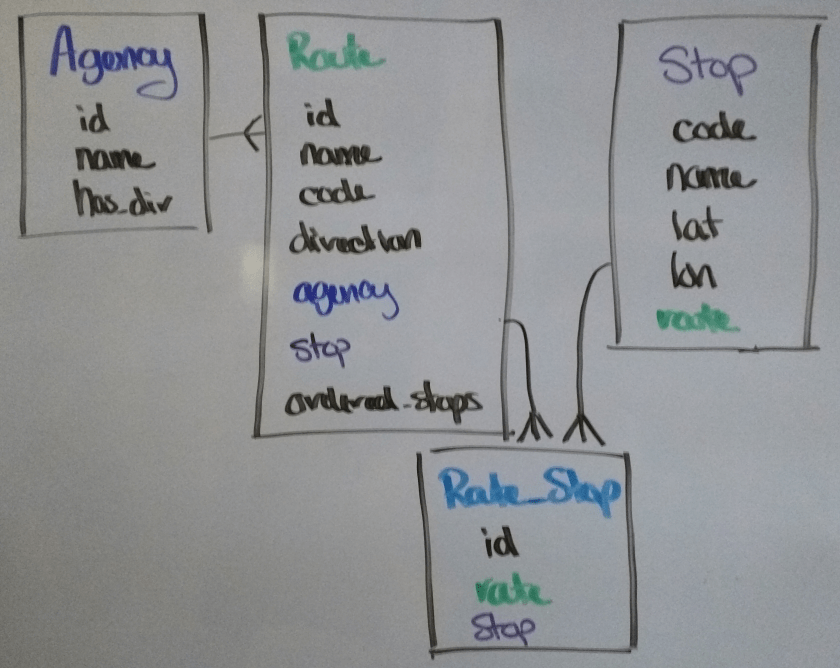 Agency
id
name
has_div
Route
id
name
code
direction
agency
stop
ordered_stops
Stop
code
name
lat
lon
route
Route_Stop
id
route
Stop